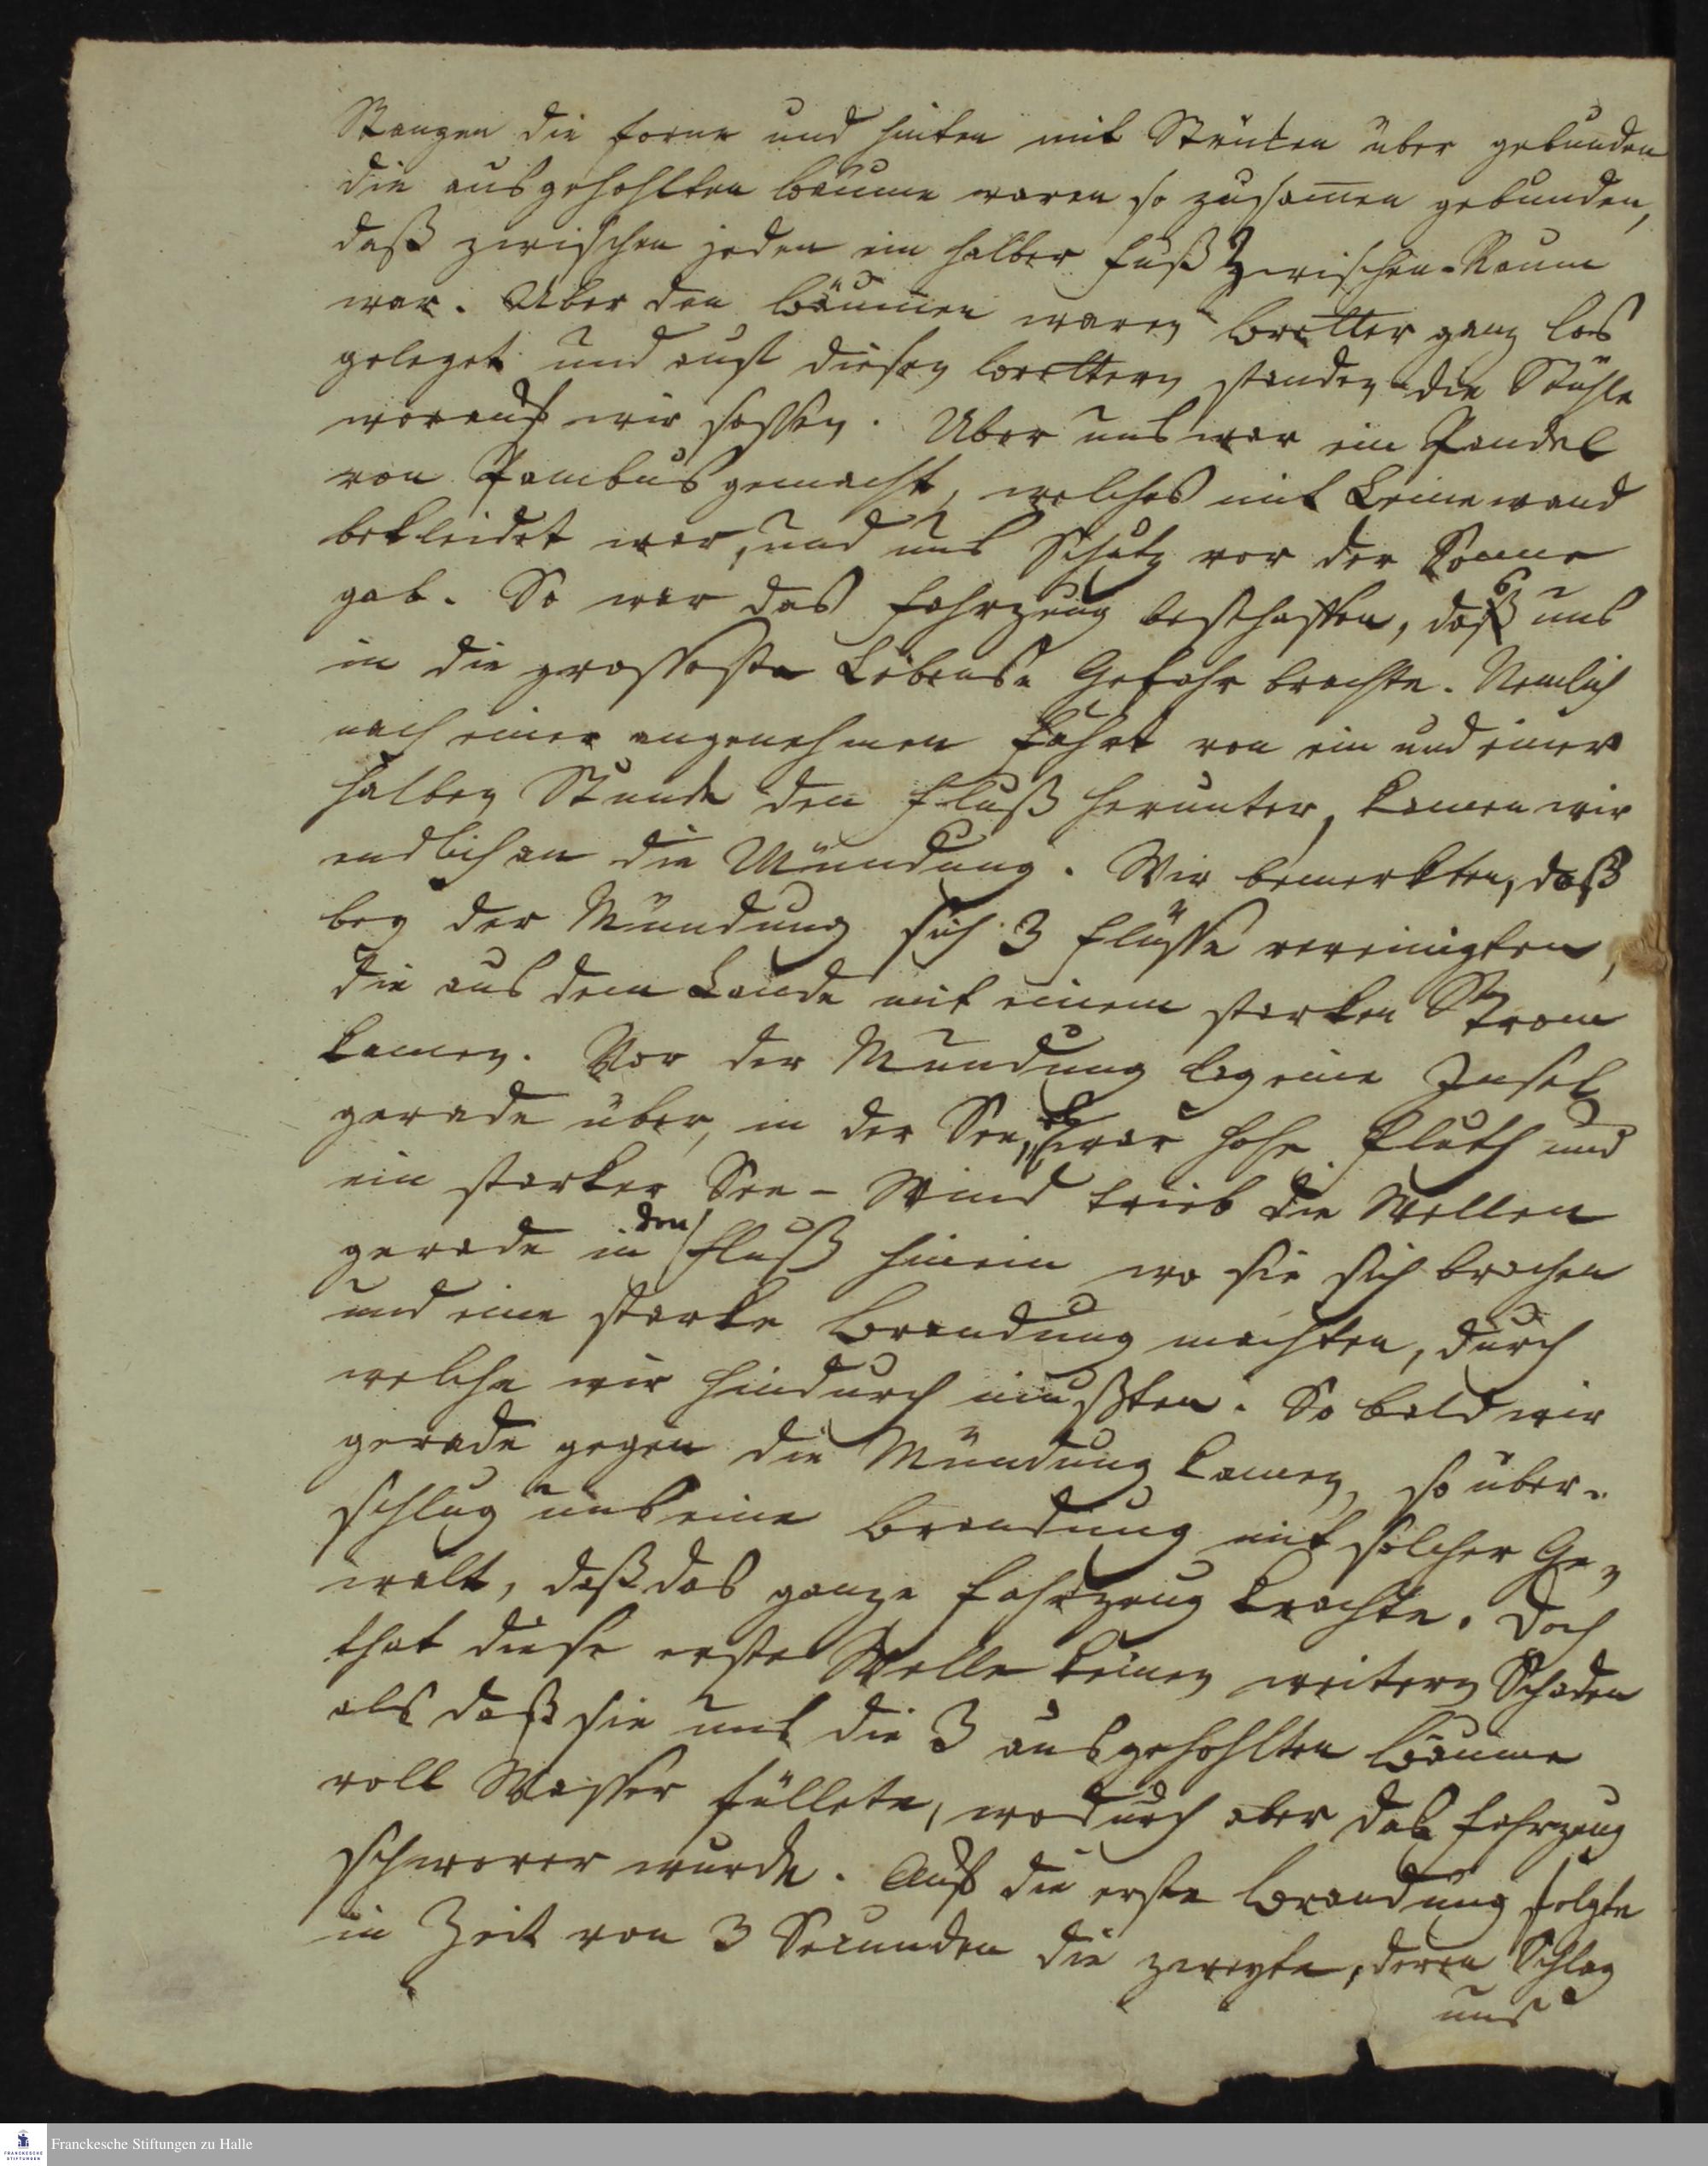 Stangen die forne und hinten mit Stricken über gebunden
die ausgehohlten Bäume waren so zusam̅en gebunden,
daß zwischen jeden ein halber Fuß Zwischen-Raum
war. Uber den Bäumen waren Bretter ganz los
geleget und auf diesen Brettern standen die Stühle
worauf wir sassen. Uber uns war ein Pandel
von Pambus gemacht, welches mit Leinewand
bekleidet war, und uns Schutz vor der Sonne
gab. So war das Fahrzeug beschaffen, daß uns
in die grosseste Lebens- Gefahr brachte. Nemlich
nach einer angenehmen Fahrt von ein und einer
halben Stunde den Fluß herunter, kamen wir
endlich an die Mündung. Wir bemerkten, daß
bey der Mündung sich 3 Flüsse vereinigten,
die aus dem Lande mit einem starken Strom
kamen. Vor der Mündung lag eine Insel
gerade über, in der See, es war hohe Fluth und
ein starker See-Wind trieb die Wellen
gerade in den Fluß hinein wo sie sich brachen
und eine starke Brandung machten, durch
welche wir hindurch mußten. So bald wir
gerade gegen die Mündung kamen, so über-
schlug uns eine Brandung mit solcher Ge-
walt, daß das ganze Fahrzeug krachte. Doch
that diese erste Welle keinen weitern Schaden
als daß sie uns die 3 ausgehohlten Bäume
voll Wasser füllete, wodurch aber das Fahrzeug
schwerer wurde. Auf die erste Brandung folgte
in Zeit von 3 Secunden die zweyte, deren Schlag
uns
Franckesche Stiftungen zu Halle
FRANCKESCHE STIFTUNGEN